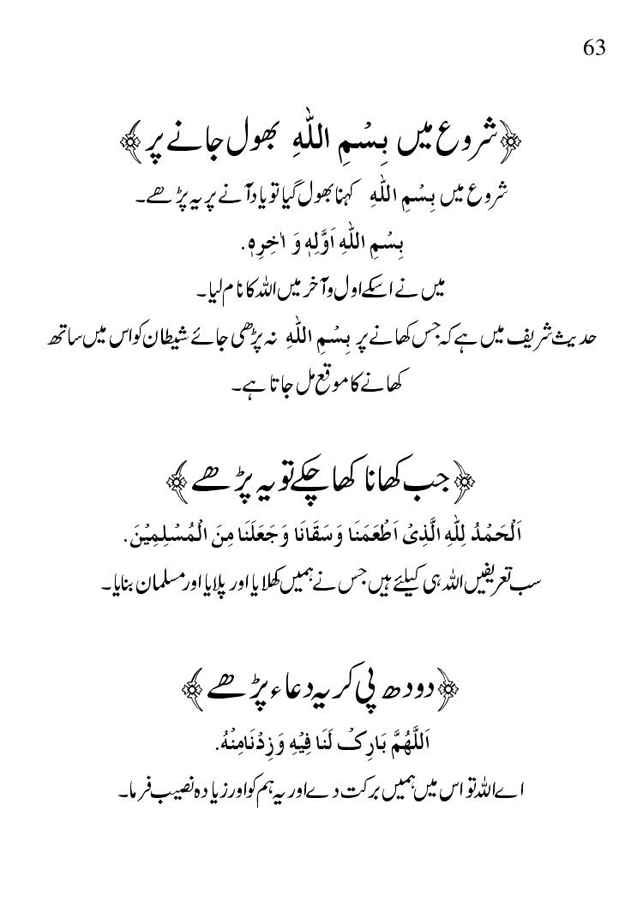 63
﴿شروع میں بِسْمِ اللّٰهِ بھول جانے پر﴾
شروع میں بِسْمِ اللّٰهِ کہنا بھول گیا تو یاد آنے پر یہ پڑھے۔
بِسْمِ اللّٰهِ اَوَّلِهٖ وَ اٰخِرِهٖ.
میں نے اسکے اول و آخر میں اللہ کا نام لیا۔
حدیث شریف میں ہے کہ جس کھانے پر بِسْمِ اللّٰهِ نہ پڑھی جائے شیطان کو اس میں ساتھ
کھانے کا موقع مل جاتا ہے۔
﴿جب کھانا کھا چکے تو یہ پڑھے﴾
اَلْحَمْدُ لِلّٰهِ الَّذِیْ اَطْعَمَنَا وَسَقَانَا وَجَعَلَنَا مِنَ الْمُسْلِمِیْنَ.
سب تعریفیں اللہ ہی کیلئے ہیں جس نے ہمیں کھلایا اور پلایا اور مسلمان بنایا۔
﴿دودھ پی کر یہ دعاء پڑھے﴾
اَللَّهُمَّ بَارِکْ لَنَا فِیْهِ وَزِدْنَامِنْهُ.
اے اللہ تو اس میں ہمیں برکت دے اور یہ ہم کو اور زیادہ نصیب فرما۔